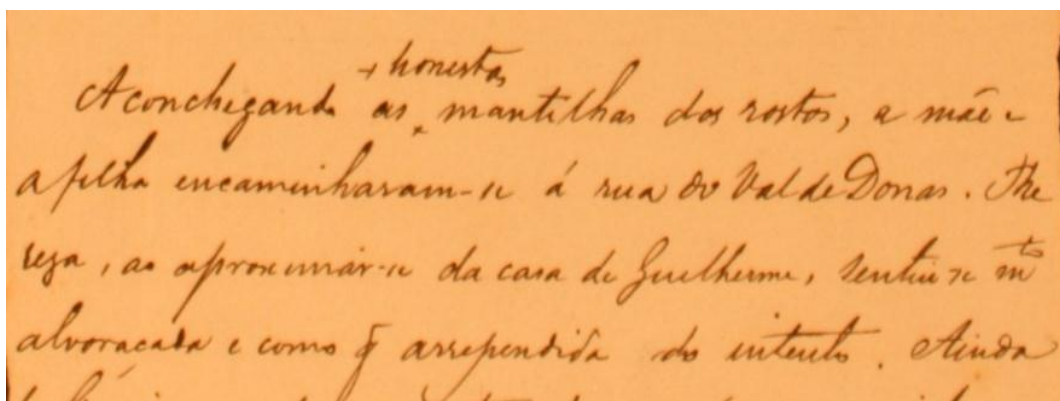 + honestas
Aconchegando as ‸ mantilhas dos rostos, a mãe e
a filha encaminharam-se á rua do Val de Donas. The
reza, ao aproximár-se da casa de Guilherme, sentiu-se mto
alvoraçada e como q̃ arrependida do intento. Ainda